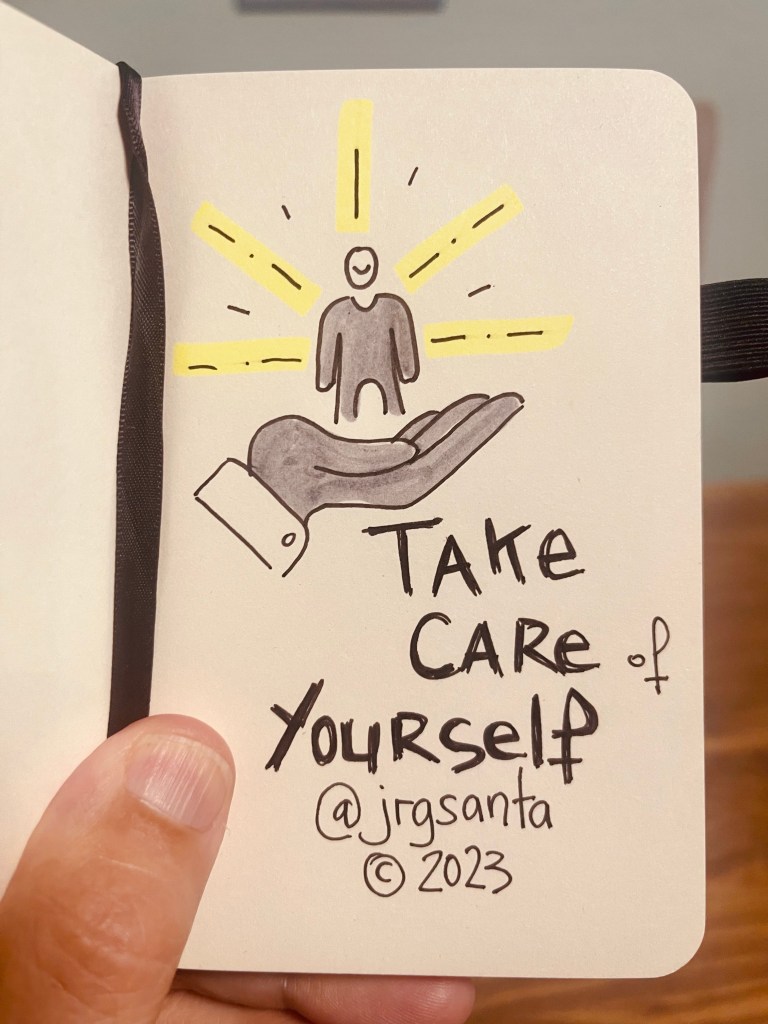 TAKe
CARe of
YouRself
@jrgsanta
© 2023